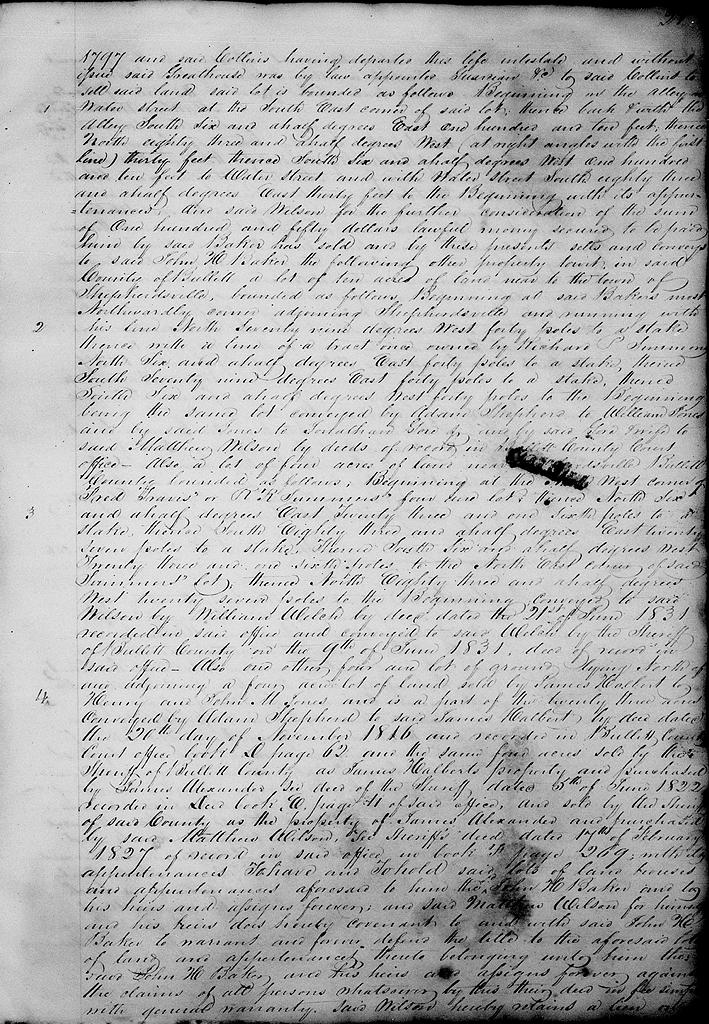 1797 and said Collins having departed this life intestate and without
issue said Greathouse was by law appointed Guardian &c to said Collins to
sell said land said lot is bounded as follows Beginning on the alley
1 Water street at the South East corner of said lot, thence back with the
Alley South Six and a half degrees East One hundred and ten feet, thence
North eighty three and a half degrees West (at right angles with the first
line) thirty feet thence South Six and a half degrees West One hundred
and ten feet to Water street and with Water street South eighty three
and a half degrees East thirty feet to the Beginning with its appur-
=tenances. And said Wilson for the further consideration of the sum
of One hundred and fifty dollars lawful money secured to be paid
him by said Baker has sold and by these presents sells and conveys
to said John H Baker the following other property towit, in said
County of Bullitt a lot of ten acres of land near to the town of
Shepherdsville, bounded as follows, Beginning at said Bakers most
Northwardly corner adjoining Shepherdsville and running with
2 his line North Seventy nine degrees West forty poles to a stake
thence with a line of a tract once owned by Richard P Simmons
North Six and a half degrees East forty poles to a stake, thence
South Seventy nine degrees East forty poles to a stake, thence
South Six and a half degrees West forty poles to the Beginning
being the same lot conveyed by Adam Shepherd to William Jones
and by said Jones to Jonathan and by said to
said Matthew Wilson by deeds of record in Bullitt County Court
office – Also a lot of four acres of land near Bullitt
County bounded as follows, Beginning at the West corner of
or Simmons' four acre lot thence North Six
3 and a half degrees East Twenty three and one Sixth poles to a
stake, thence South Eighty three and a half degrees East twenty
Seven poles to a stake, Thence South Six and a half degrees West
Twenty three and one sixth poles to the North East corner of said
Simmons' lot, thence North Eighty three and a half degrees
West twenty seven poles to the Beginning conveyed to said
Wilson by William Welch by deed dated the 21st of June 1831
recorded in said office and conveyed to said Welch by the Sheriff
of Bullitt County on the 9th of June 1831, deed of record in
said office – Also one other four acre lot of ground lying North of
and adjoining a four acre lot of land sold by James Halbert to
4 Henry and John M Jones and is a part of the twenty three acres
Conveyed by Adam Shepherd to said James Halbert by deed dated
the 20th day of November 1816 and recorded in Bullitt County
Court office book D page 62 and the same four acres sold by the
Sheriff of Bullitt County as James Halberts property and purchased
by James Alexander See deed of the Sheriff dated 5th of June 1822
recorded in Deed book page 41 of said office, and sold by the Sheriff
of said County as the property of James Alexander and purchased
by said Matthew Wilson, See Sheriff's deed dated 17th of February
1827 of record in said office in book page 269; with its
appurtenances To have and To hold said lots of land houses
and appurtenances aforesaid to him the John H Baker and to
his heirs and assigns forever; and said Matthew Wilson for himself
and his heirs does hereby covenant to and with said John H
Baker to warrant and forever defend the title to the aforesaid lots
of land and appurtenances thereto belonging unto him the
said John H Baker and his heirs and assigns forever against
the claims of all persons whatsoever by this their deed in fee simple
with general warranty. Said Wilson hereby retains a lien on